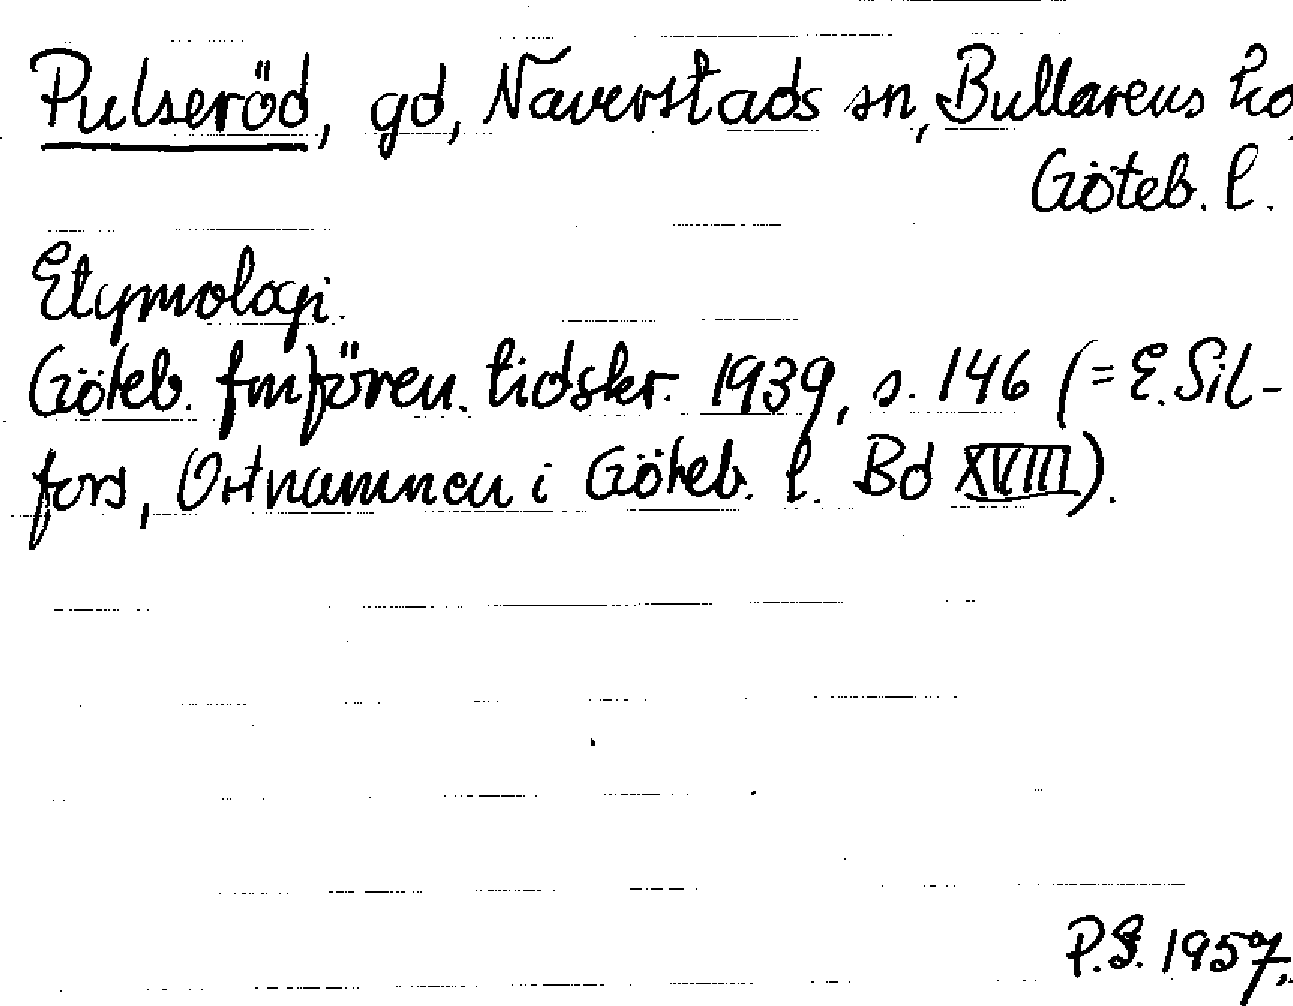 Pulseröd, gd, Naverstads sn, Bullarens hd
Göteb. l.
Etymologi.
Göteb. fmfören. tidskr. 1939, s. 146 (= E. Sil-
fors, Ortnamnen i Göteb. l. Bd XVIII).
P.S. 1957.